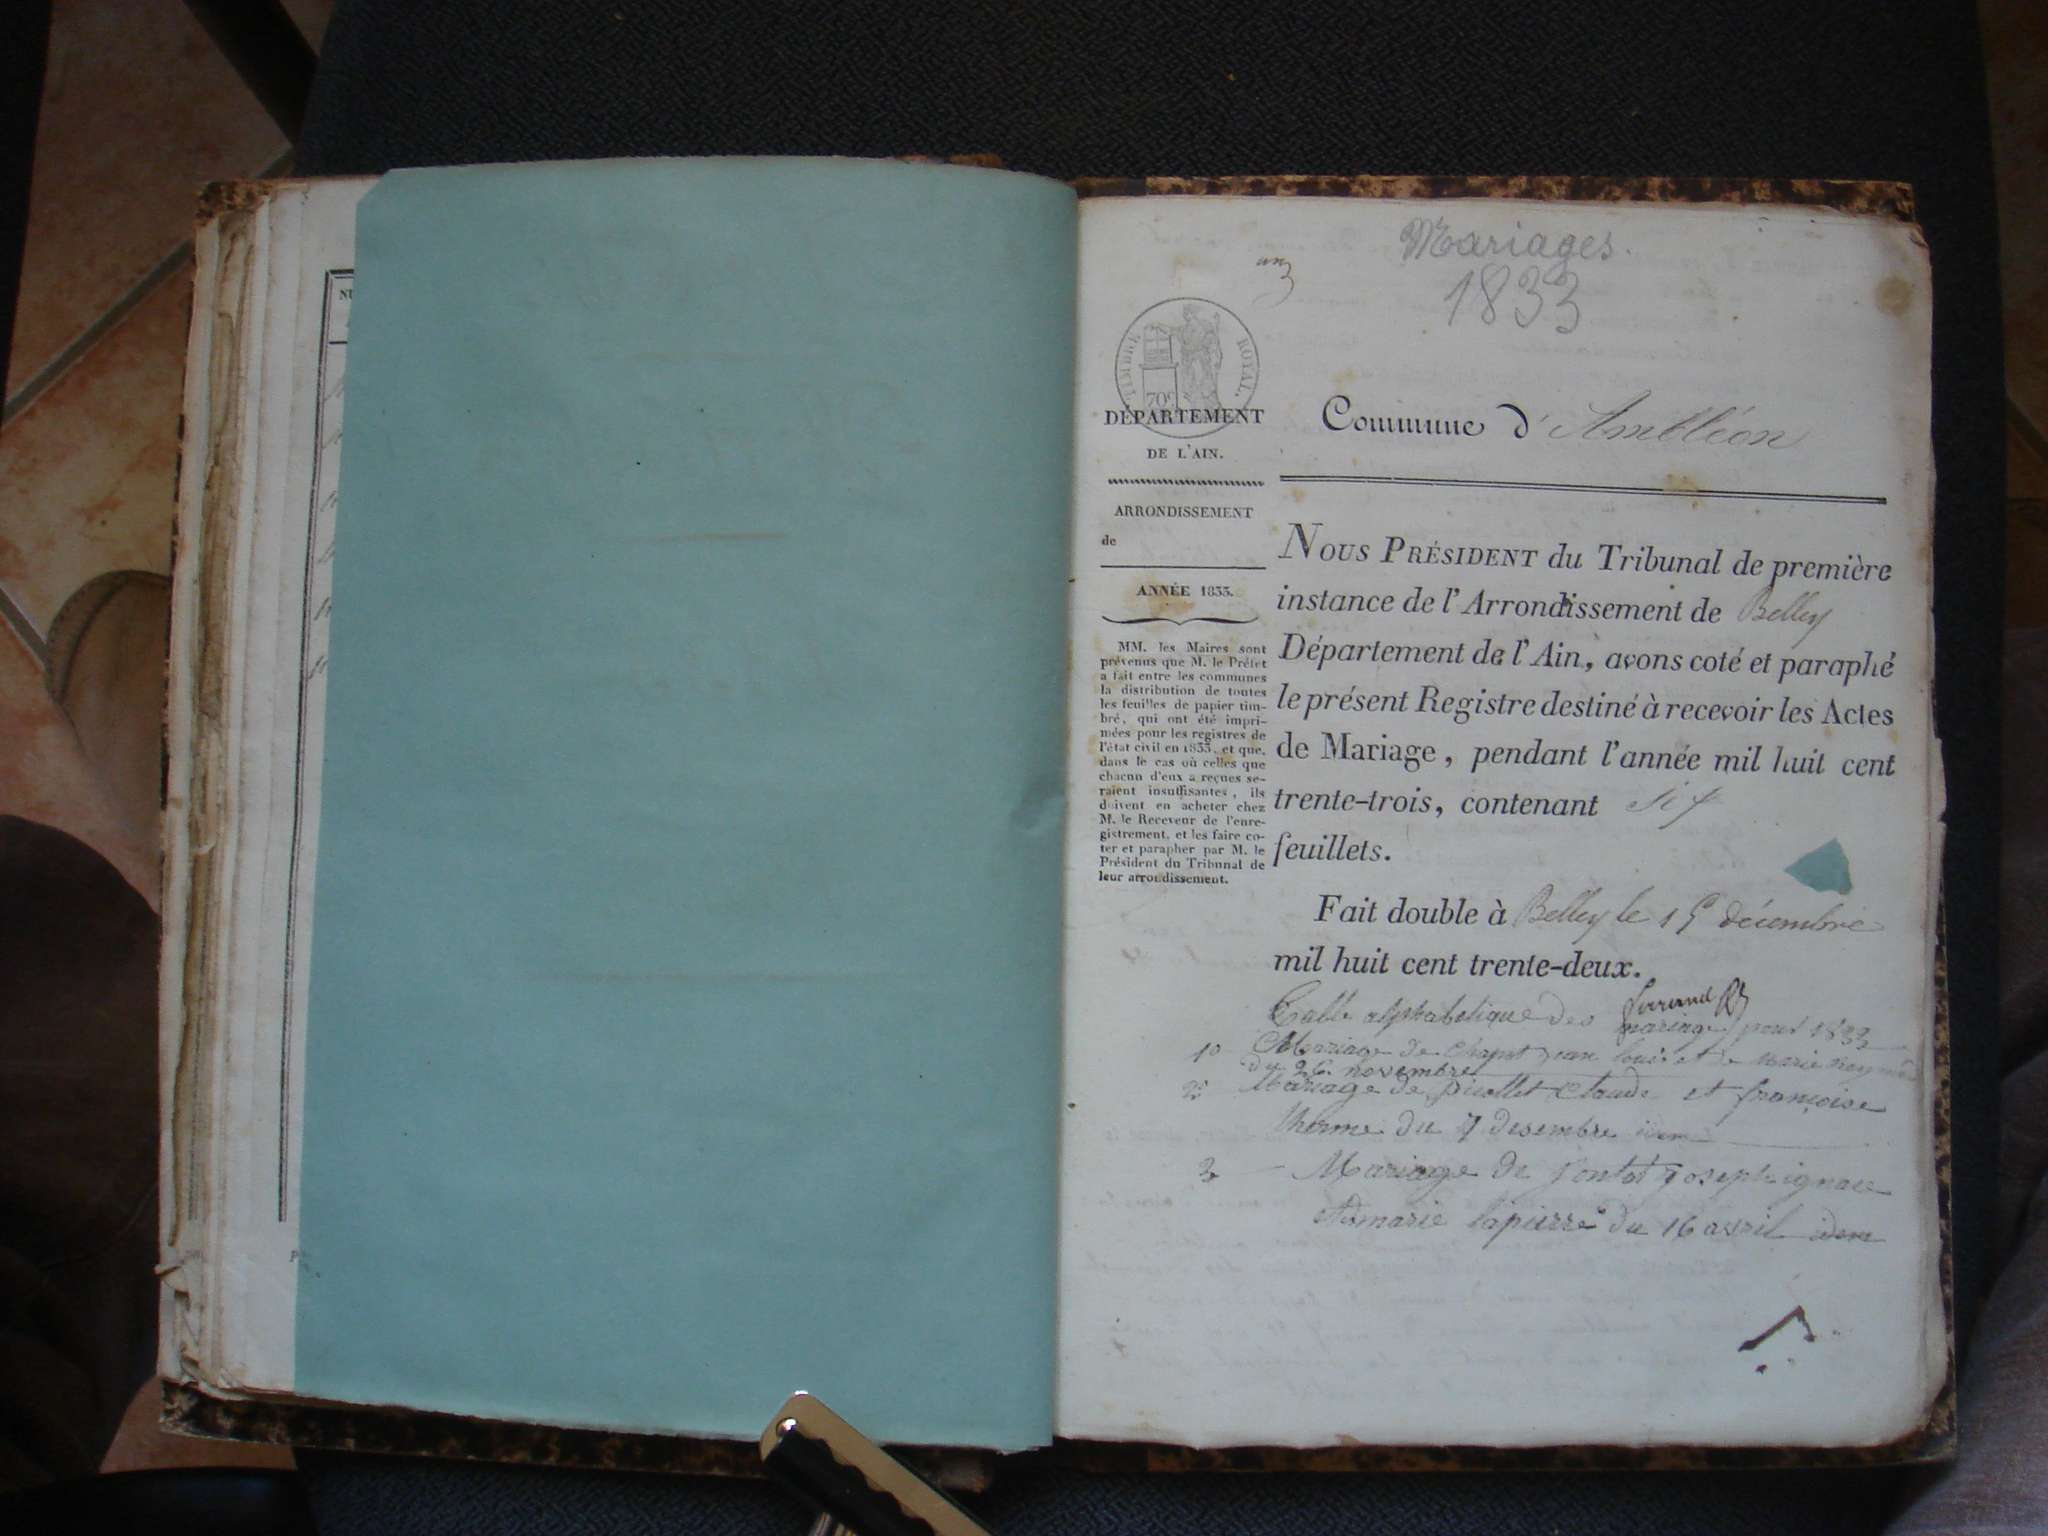 Mariages.
1833
un
TIMBRE ROYAL.
70c
DÉPARTEMENT
DE L'AIN.
ARRONDISSEMENT
de
ANNÉE 1833.
MM. les Maires sont
prévenus que M. le Préfet
a fait entre les communes
la distribution de toutes
les feuilles de papier tim-
bré, qui ont été impri-
mées pour les registres de
l'état civil en 1833, et que,
dans le cas où celles que
chacun d'eux a reçues se-
raient insuffisantes, ils
doivent en acheter chez
M. le Receveur de l'enre-
gistrement, et les faire co-
ter et parapher par M. le
Président du Tribunal de
leur arrondissement.
Commune d'Ambléon
NOUS PRÉSIDENT du Tribunal de première
instance de l'Arrondissement de Belley
Département de l'Ain, avons coté et paraphé
le présent Registre destiné à recevoir les Actes
de Mariage, pendant l'année mil huit cent
trente-trois, contenant six
feuillets.
Fait double à Belley le 15 décembre
mil huit cent trente-deux.
Table alphabetique des mariage pour 1833
1º Mariage de Chapot jean louis et de marie
du 26 novembre
2º Mariage de picollet Claude et françoise
therme du 7 desembre idem
3 Mariage de joseph ignace
marie lapierre du 16 avril idem